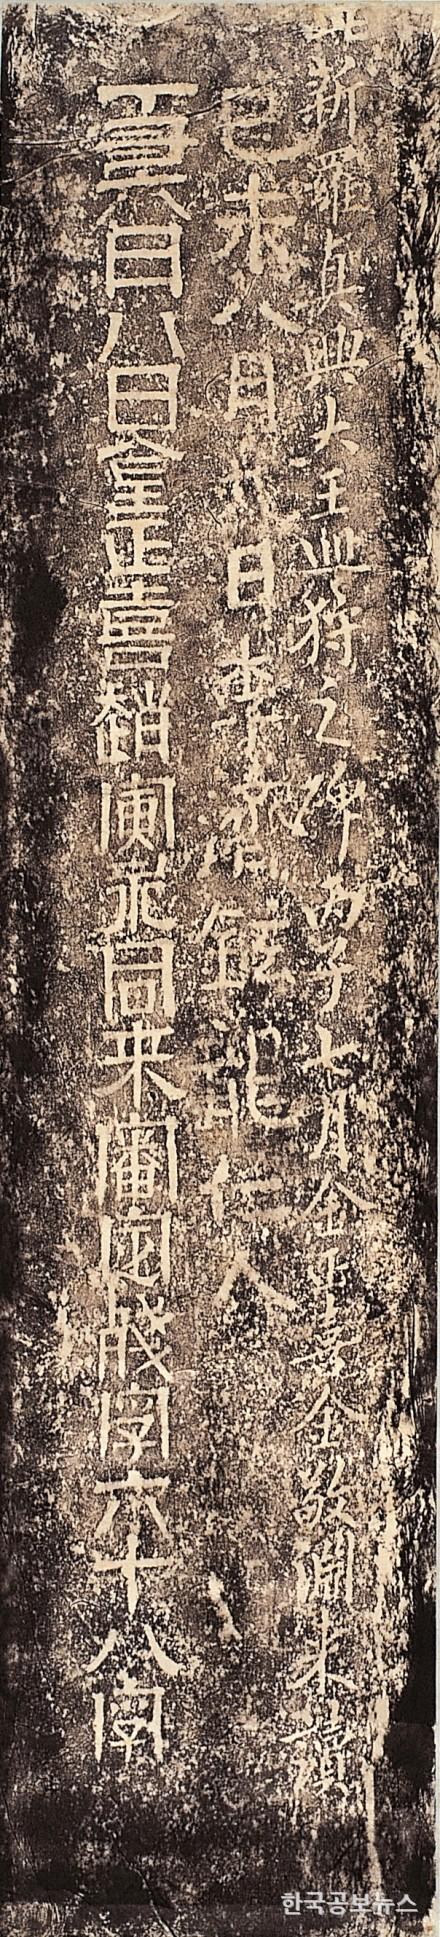 此新羅眞興大王巡狩之碑丙子七月金正喜金敬淵来讀
己未八月廿日李濟鉉龍仁人
丁丑六月八日金正喜趙寅永同来審定殘字六十八字
한국공보뉴스